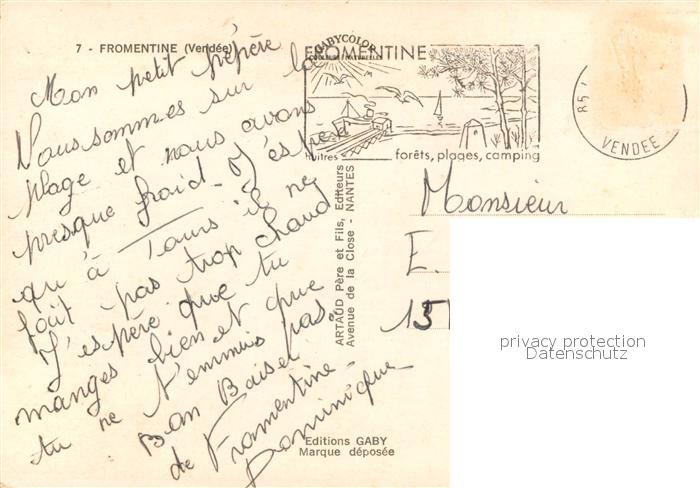 7 - FROMENTINE (Vendée)
Mon petit pépère
Nous sommes sur la
plage et nous avons
presque froid. J'espère
qu'à Tours il ne
fait pas trop chaud
J'espère que tu
manges bien et que
tu ne t'ennuis pas.
Bon Baiser
de Fromentine
Dominique
GABYCOLOR
FROMENTINE
huîtres
forêts, plages, camping
85
VENDEE
ARTAUD Père et Fils, Editeurs
Avenue de la Close - NANTES
Monsieur
E.
15
privacy protection
Datenschutz
Editions GABY
Marque déposée